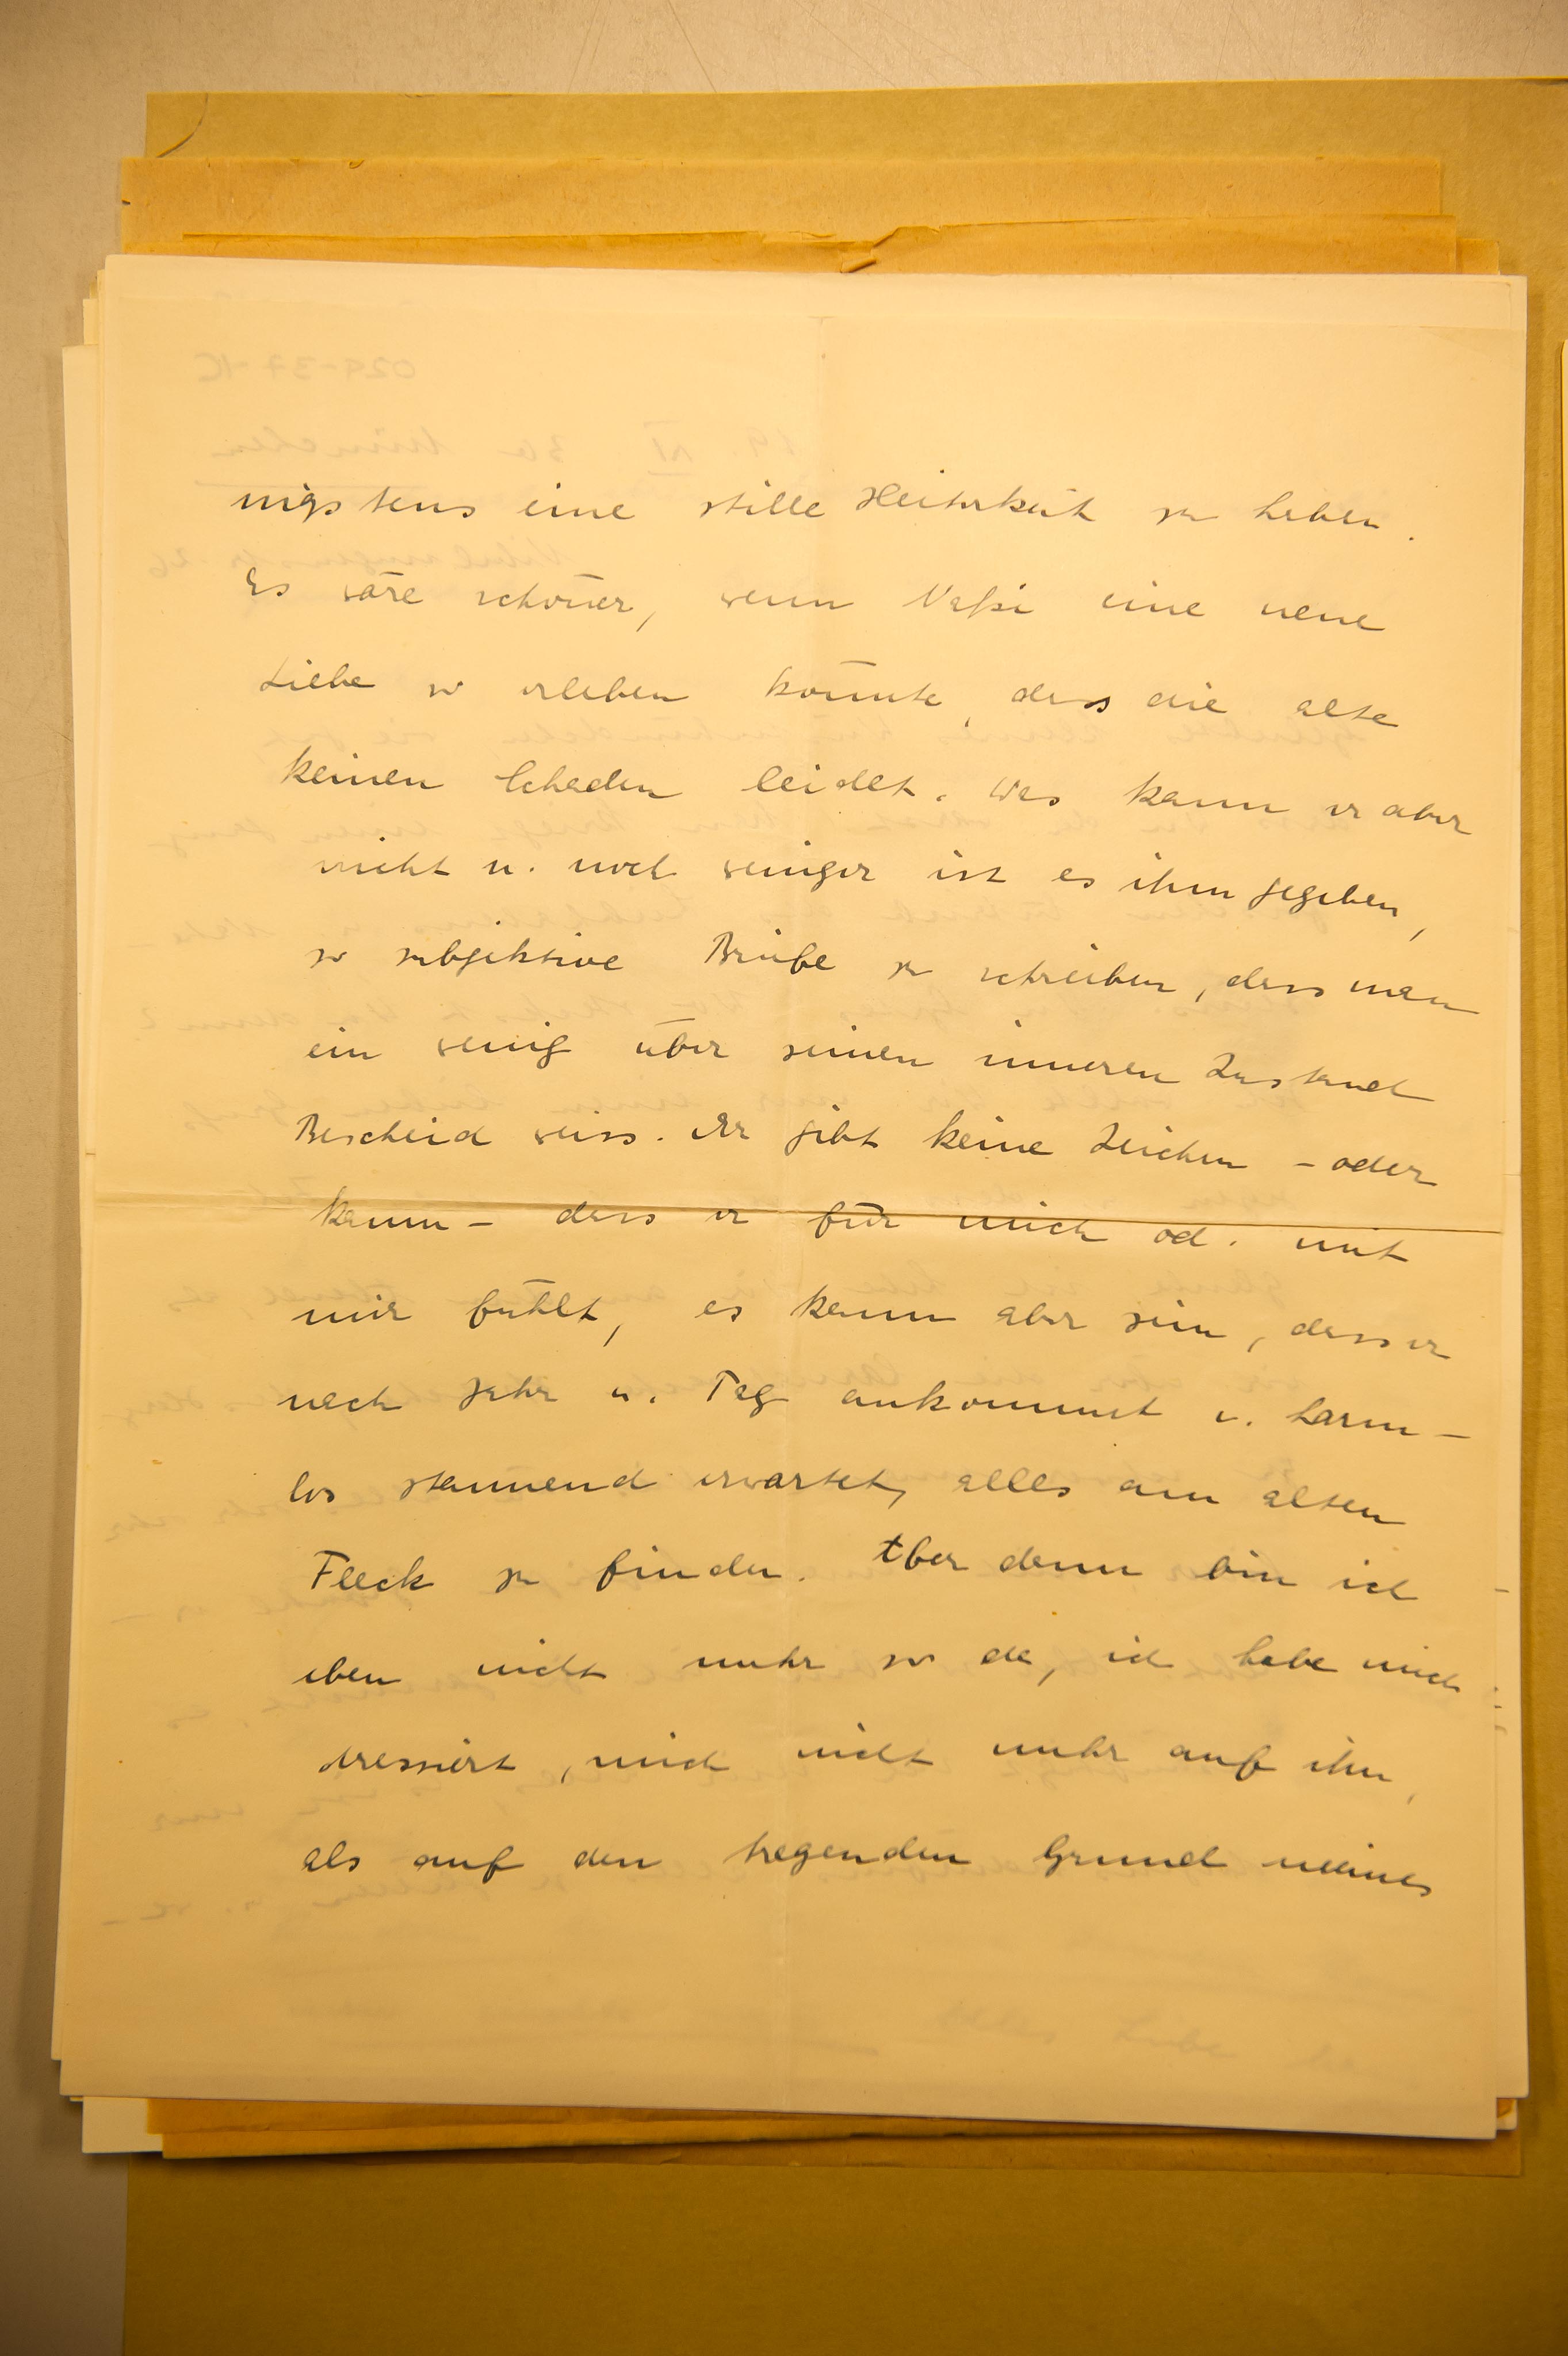 nigstens eine stille Heiterkeit zu haben.
Es wäre schöner, wenn eine neue
Liebe so erleben könnte, dass die alte
keinen Schaden leidet. Das kann er aber
nicht u. noch weniger ist es ihm gegeben,
so subjektive Briefe zu schreiben, dass man
ein wenig über seinen inneren Zustand
Bescheid weiss. Er gibt keine Zeichen – oder
kaum – dass er für mich od. mit
mir fühlt, es kann aber sein, dass er
nach Jahr u. Tag ankommt u. harm-
los staunend erwartet, alles am alten
Fleck zu finden. Aber dann bin ich
eben nicht mehr so da, ich habe mich
dressiert, mich nicht mehr auf ihn,
als auf den tragenden Grund meines